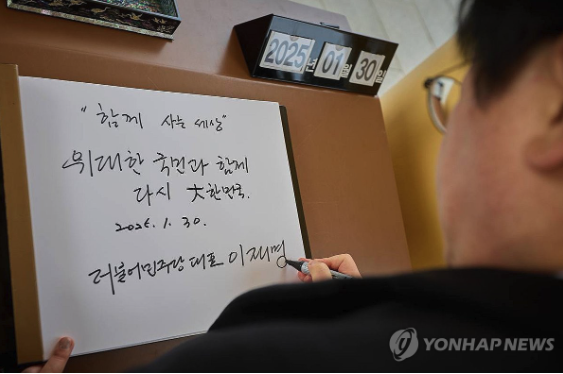 2025 년 01 월 30 일
"함께 사는 세상"
위대한 국민과 함께
다시 大한민국.
2025. 1. 30.
더불어민주당 대표 이재명
YONHAP NEWS